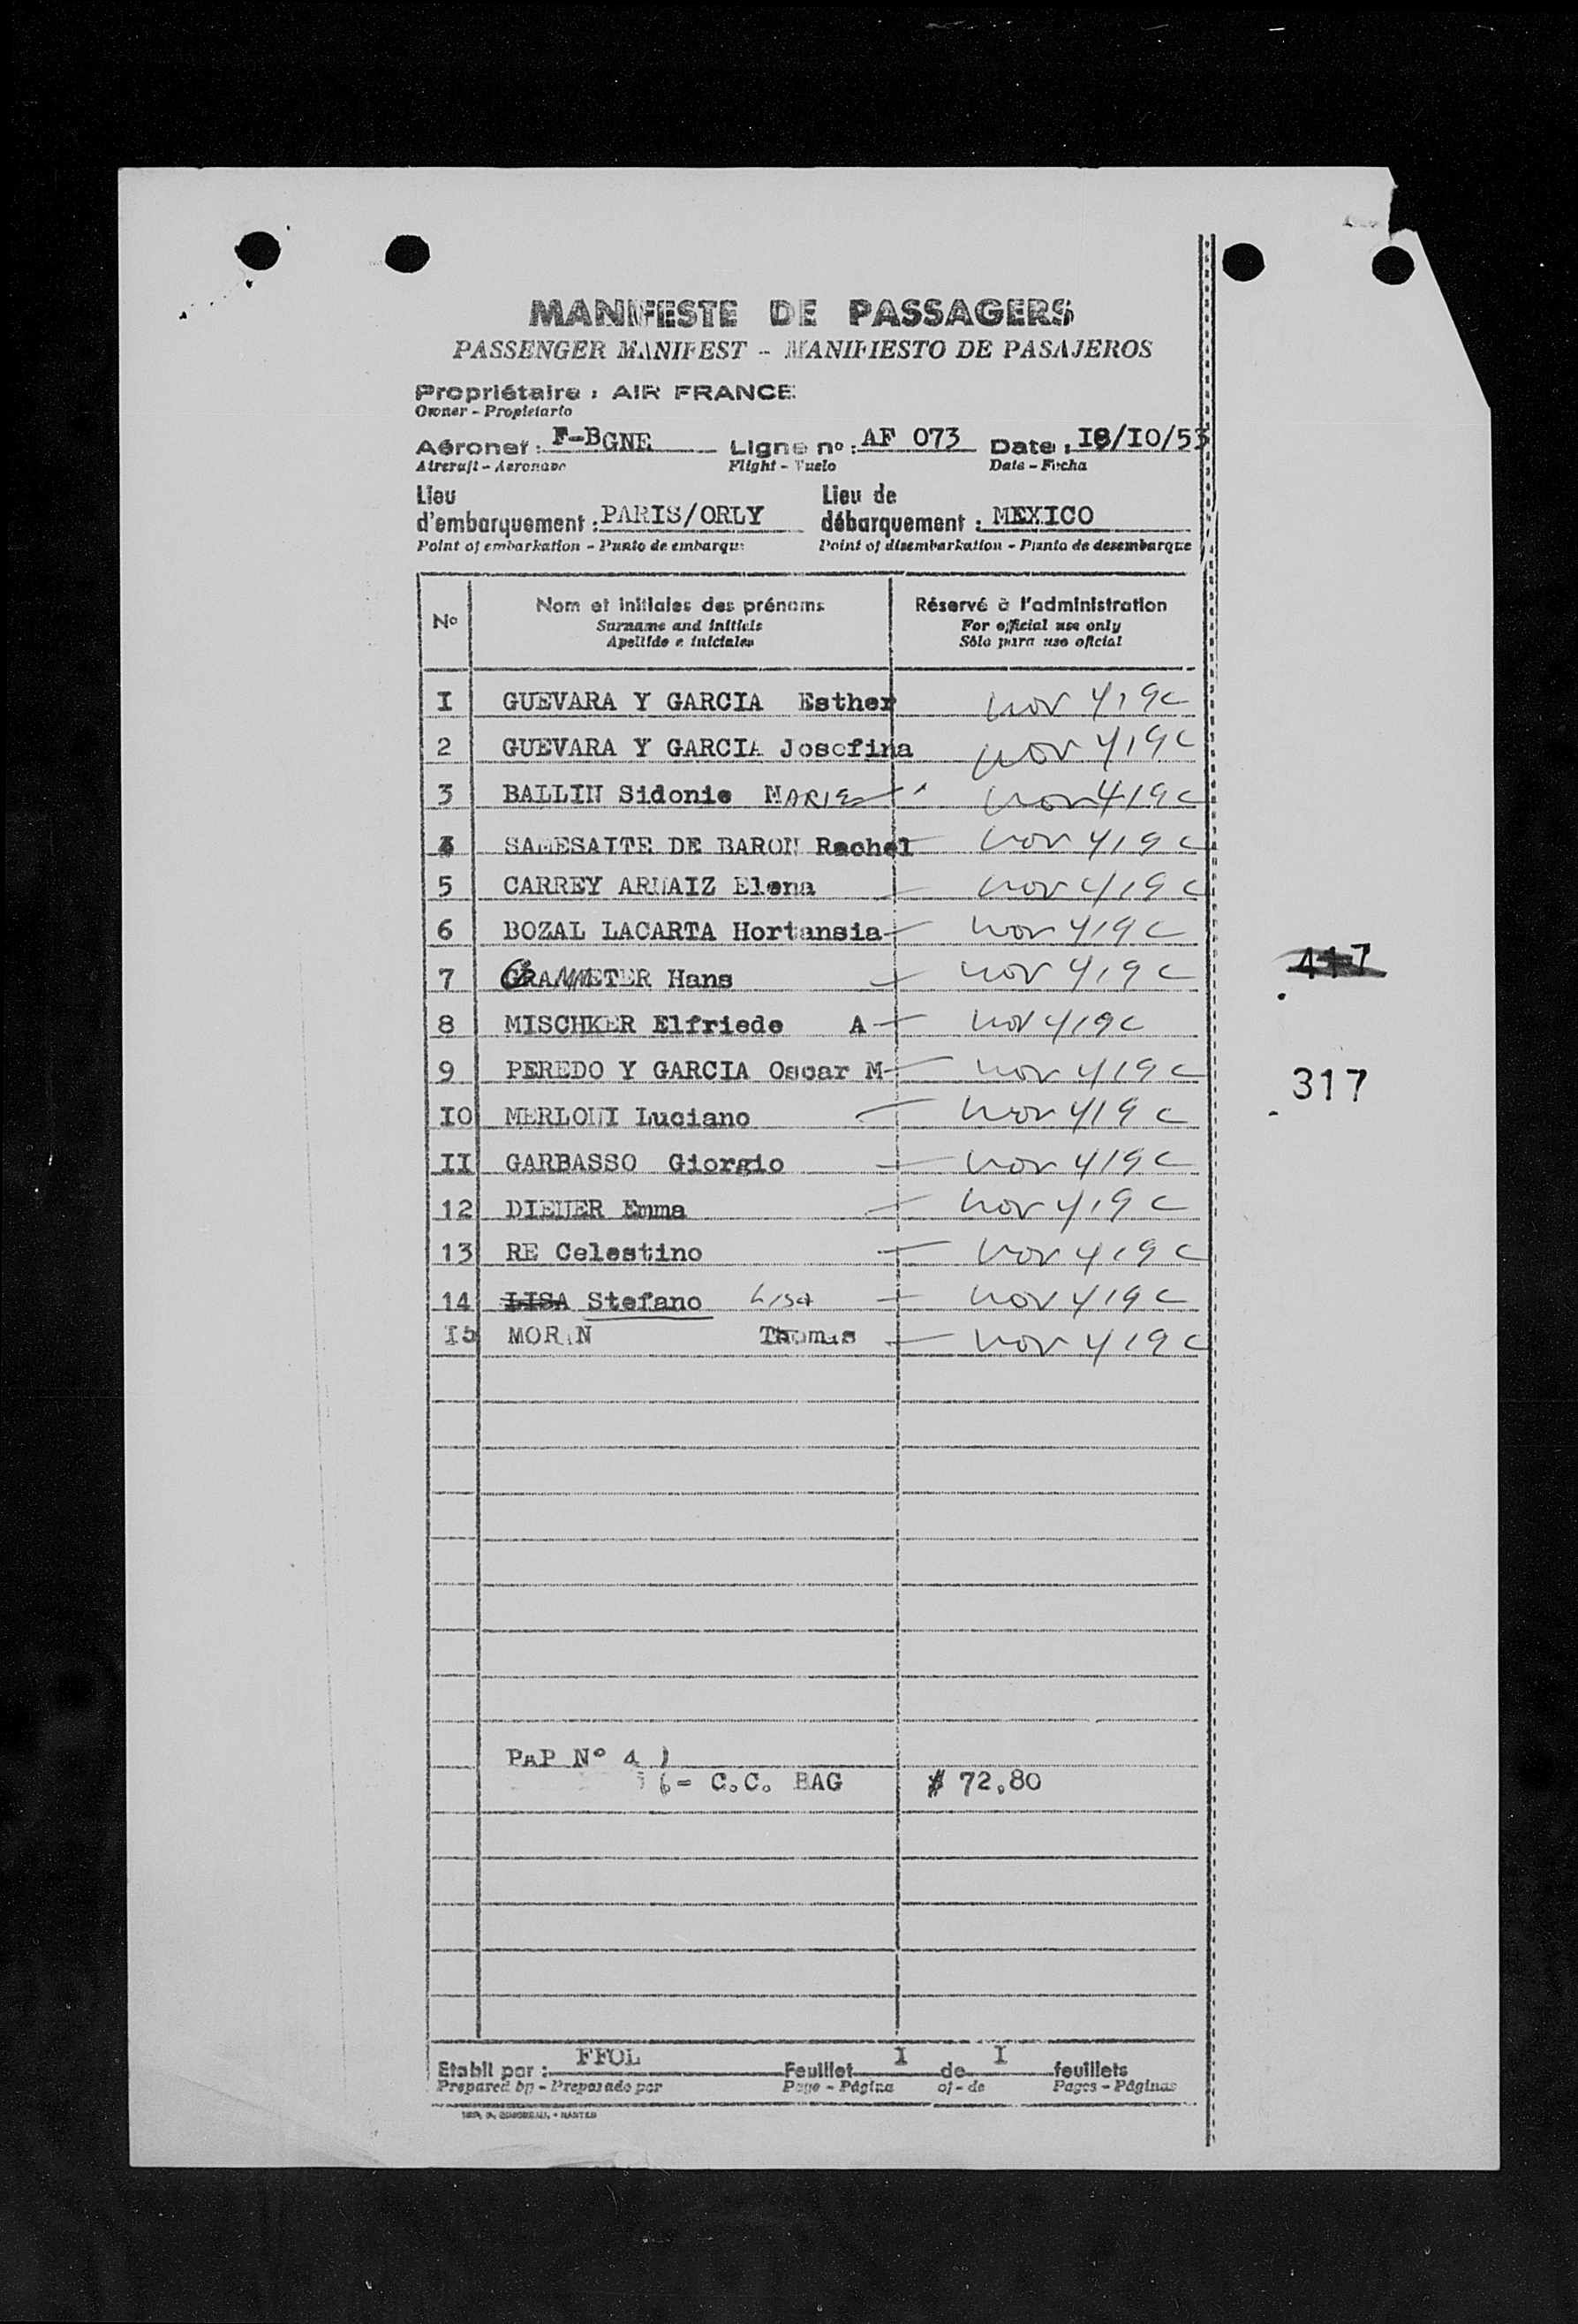 MANIFESTE DE PASSAGERS
PASSENGER MANIFEST - MANIFIESTO DE PASAJEROS
Propriétaire : AIR FRANCE
Owner - Propietario
Aéronef : F-BGNE Ligne no : AF 073 Date : I8/IO/53
Aircraft - Aeronave Flight - Vuelo Date - Fecha
Lieu d'embarquement : PARIS/ORLY Lieu de débarquement : MEXICO
Point of embarkation - Punto de embarque Point of disembarkation - Punto de desembarque
No Nom et initiales des prénoms Réservé à l'administration
Surname and initials For official use only
Apellido e iniciales Sólo para uso oficial
I GUEVARA Y GARCIA Esther nov 419c
2 GUEVARA Y GARCIA Josefina nov 419c
3 BALLIN Sidonie MARIE nov 419c
4 SAMESAITE DE BARON Rachel nov 419c
5 CARREY ARNAIZ Elena nov 419c
6 BOZAL LACARTA Hortansia nov 419c
7 Hans nov 419c
8 MISCHKER Elfriede A nov 419c
9 PEREDO Y GARCIA Oscar M nov 419c
IO MERLONI Luciano nov 419c
II GARBASSO Giorgio nov 419c
12 DIENER Emma nov 419c
13 RE Celestino nov 419c
14 LISA Stefano Lisa nov 419c
I5 MORAN Thomas nov 419c
417
317
PAP No 4 )
6 = C.C. BAG $ 72.80
Etabli par : FFOL Feuillet I de I feuillets
Prepared by - Preparado por Page - Página of - de Pages - Páginas